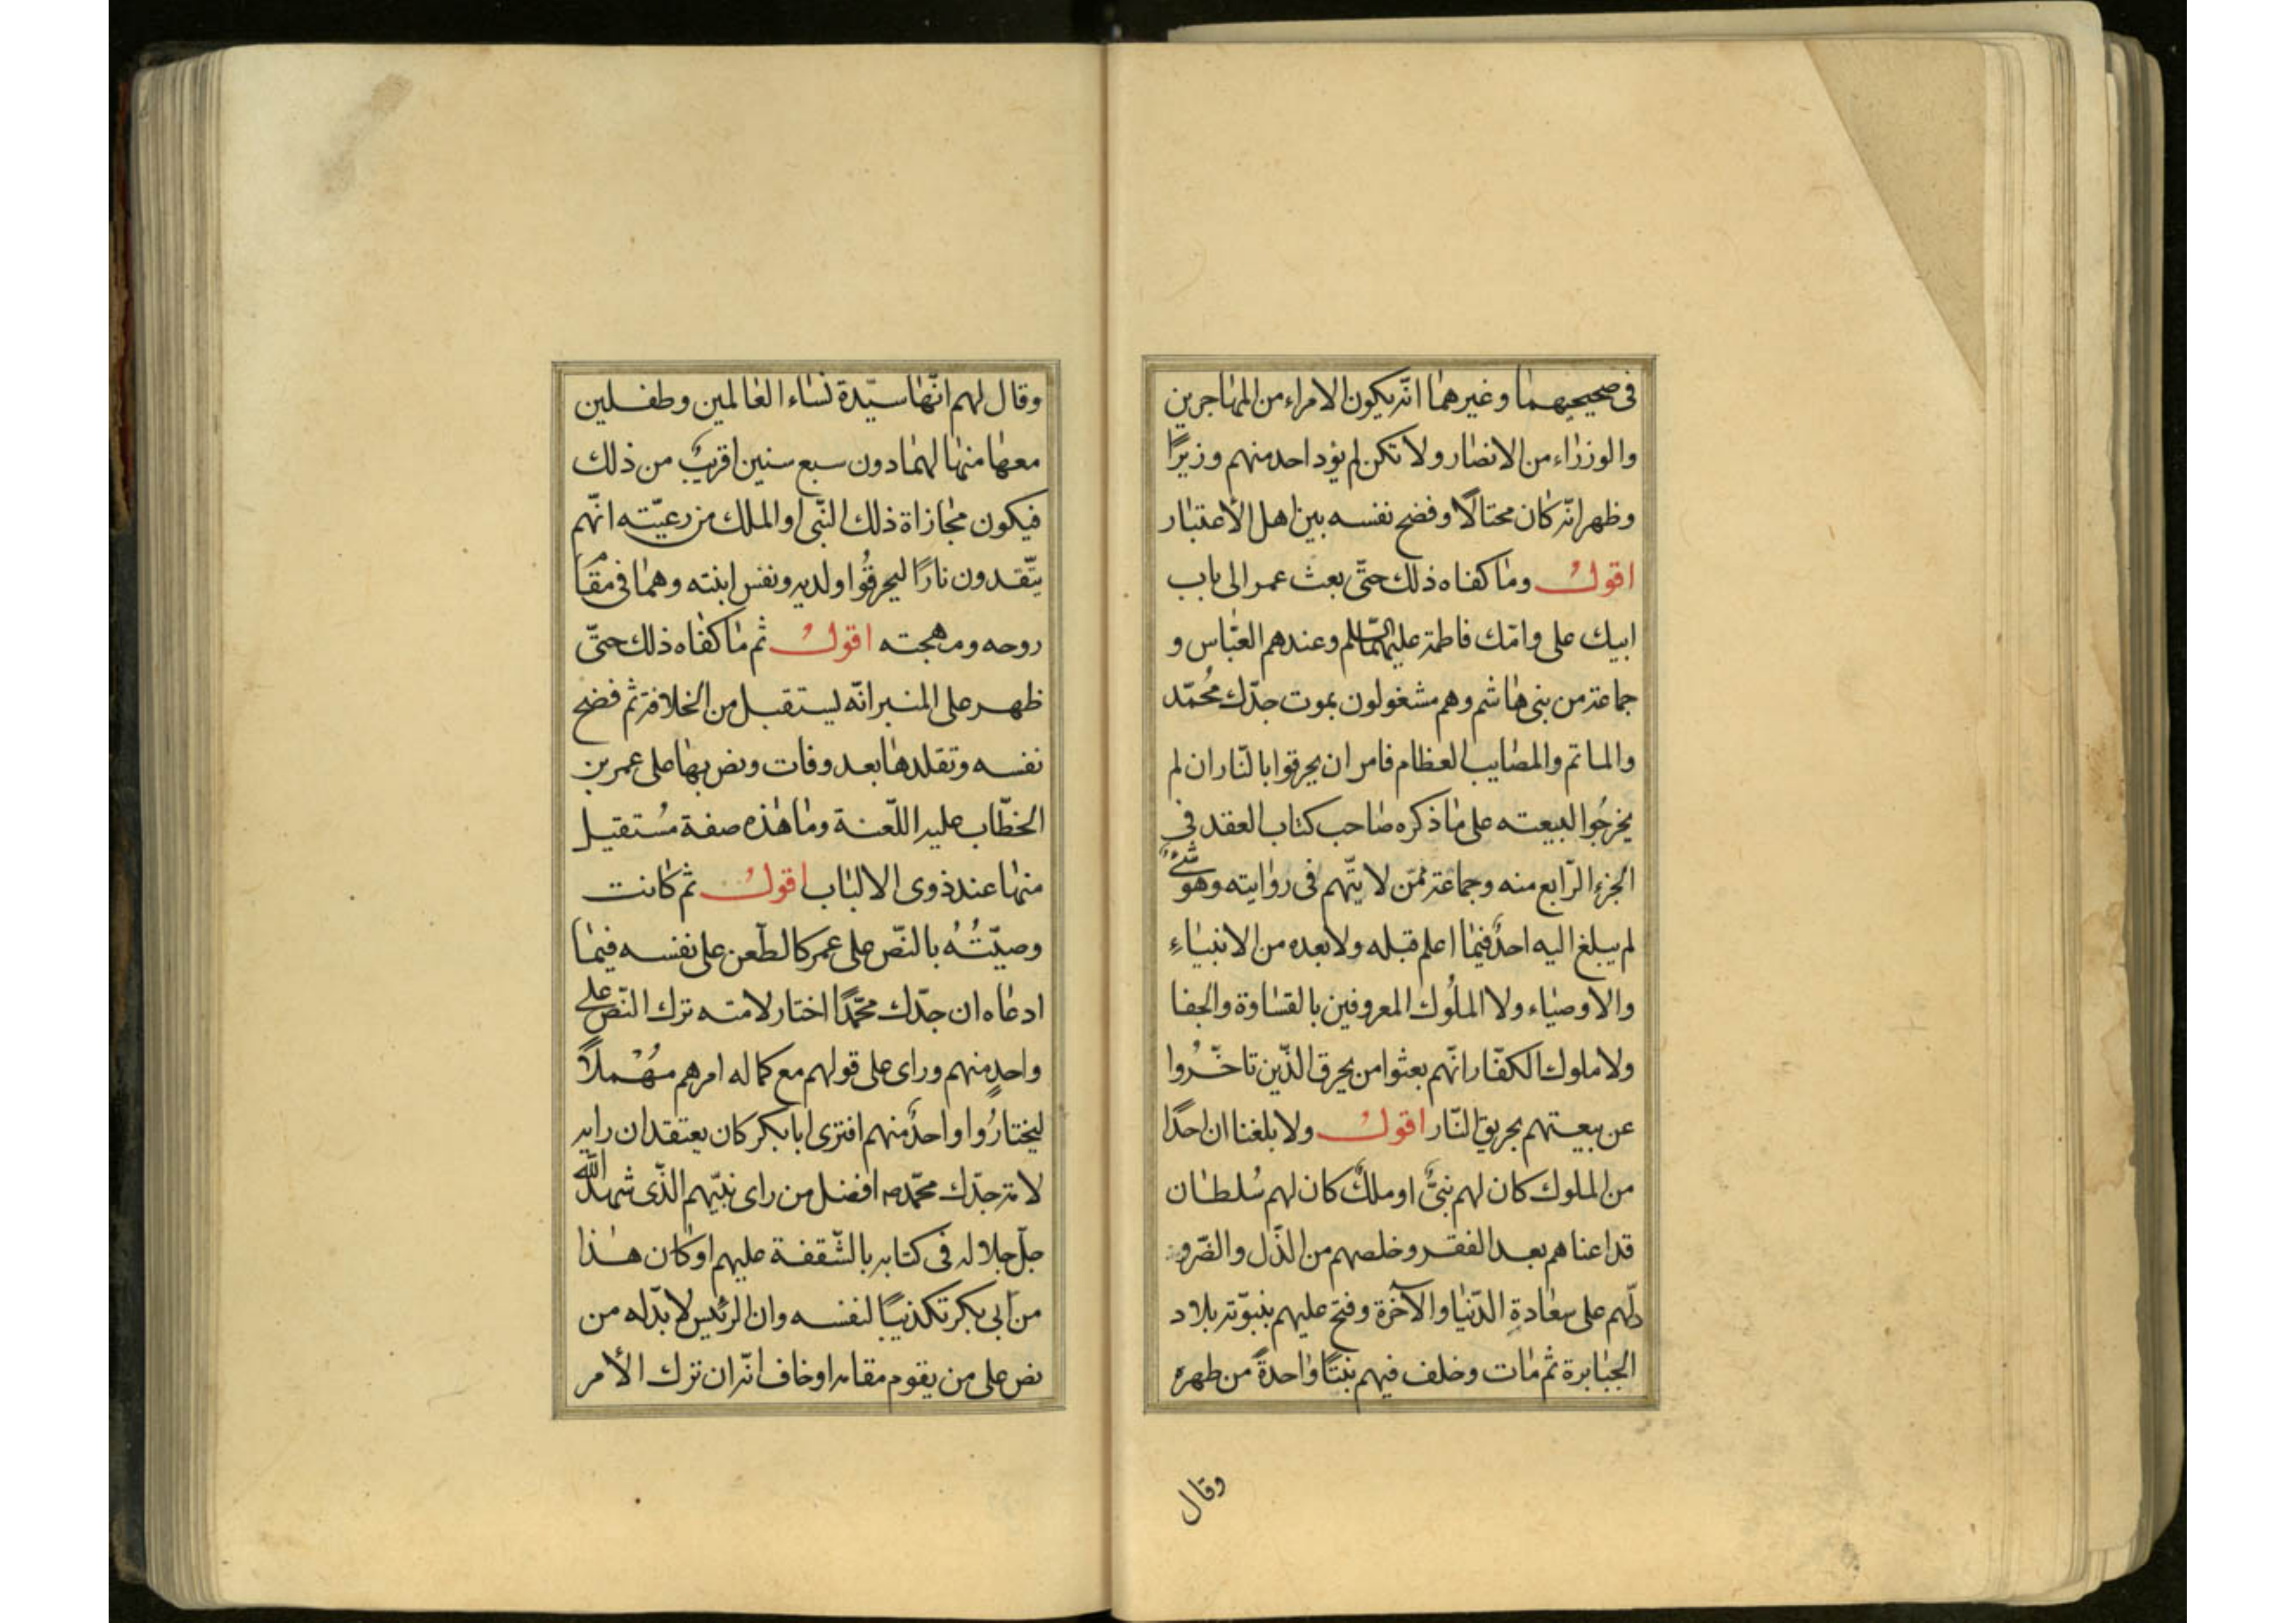 فى صحيحيهما وغيرهما انّه يكون الامراء من المهاجرين
والوزراء من الانصار ولا تكن لم يؤد احد منهم وزيرًا
وظهر انّه كان محتالًا وفضح نفسه بين اهل الأعتبار
اقول وما كفاه ذلك حتّى بعث عمر الى باب
ابيك على وامّك فاطمة عليهما السّلم وعندهم العبّاس و
جماعة من بنى هاشم وهم مشغولون بموت جدّك مُحمّد
والماتم والمصايب العظام فامر ان يحرقوا بالنّار ان لم
يخرجُوا للبيعته على ما ذكره صاحب كتاب العقد فى
الجزء الرّابع منه وجماعة ممّن لا يتّهم فى روايته وهو شئٌ
لم يبلغ اليه احدٌ فيما اعلم قبله ولا بعده من الانبياءِ
والاوصياء ولا الملُوك المعروفين بالقساوة والجفا
ولا ملوك الكفّار انّهم بعثوا من يحرق الّذين تاخّرُوا
عن بيعتهم بحريق النّار اقول ولا بلغنا ان احدًا
من الملوك كان لهم نبىٌّ او ملكٌ كان لهم سُلطان
قد اعناهم بعد الفقر وخلصهم من الذّل والضّر و
دلّهم على سعادةِ الدّنيا والآخرة وفتح عليهم بنبوّته بلاد
الجبابرة ثم مات وخلف فيهم بنتًا واحدةً من ظهره
وقال
وقال لهم انّها سيّدة نساء العالمين وطفلين
معها منها لهما دون سبع سنين اقريبٌ من ذلك
فيكون مجازاة ذلك النّبى او الملك من رعيّته انّهم
يتّقدون نارًا ليحرقُوا ولديه ونفس ابنته وهما فى مقام
روحه ومهجته اقول ثم ما كفاه ذلك حتّى
ظهر على المنبر انّه ليستقيل من الخلافة ثم فضح
نفسه وتقلدها بعد وفات ونص بها على عمر بن
الخطّاب عليه اللّعنة وما هذه صفة مُستقيل
منها عند ذوى الالباب اقول ثم كانت
وصيّتُهُ بالنّص على عمر كالطّعن على نفسه فيما
ادعاه ان جدّك محمّدًا اختار لامته ترك النّص على
واحدٍ منهم وراى على قولهم مع كماله امرهم مُهْملًا
ليختارُوا واحدٌ منهم افترى ابا بكر كان يعتقد ان رايه
لامة جدّك محمّد ص افضل من راى نبيّهم الّذى شهد الله
جلّ جلاله فى كتابه بالشّفقة عليهم او كان هذا
من ابى بكر تكذيبًا لنفسه وان الرئيس لا بدّ له من
نص على من يقوم مقامه او خاف انّه ان ترك الأمر